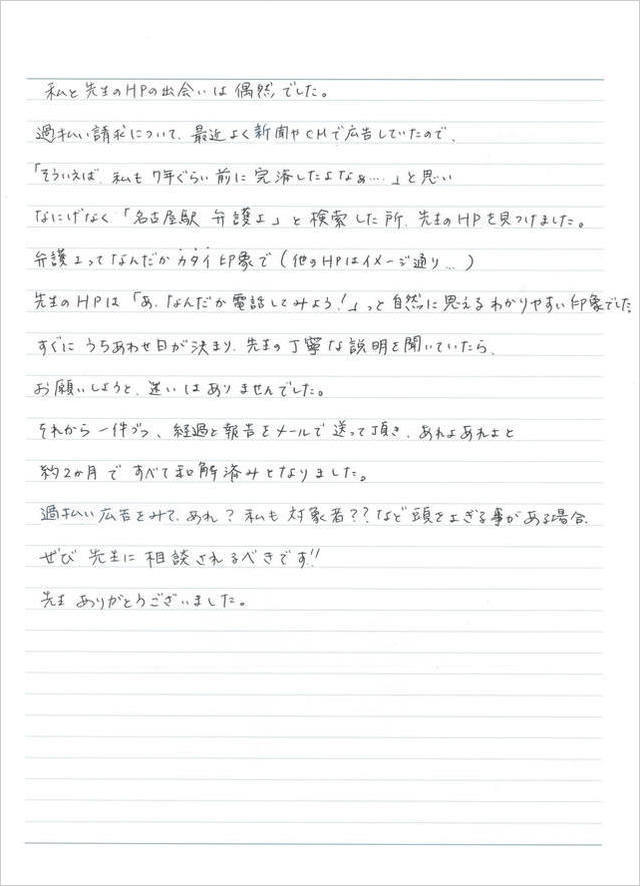 私と先生のHPの出会いは偶然でした。
過払い請求について、最近よく新聞やCMで広告していたので、
「そういえば、私も7年ぐらい前に完済したよなぁ....」と思い
なにげなく「名古屋駅 弁護士」と検索した所、先生のHPを見つけました。
弁護士ってなんだかカタイ印象で(他のHPはイメージ通り...)
先生のHPは「あ、なんだか電話してみよう!」っと自然に思えるわかりやすい印象でした
すぐにうちあわせ日が決まり、先生の丁寧な説明を聞いていたら、
お願いしようと、迷いはありませんでした。
それから一件づつ、経過と報告をメールで送って頂き、あれよあれよと
約2か月ですべて和解済みとなりました。
過払い広告をみて、あれ?私も対象者??など頭をよぎる事がある場合、
ぜひ先生に相談されるべきです!!
先生ありがとうございました。